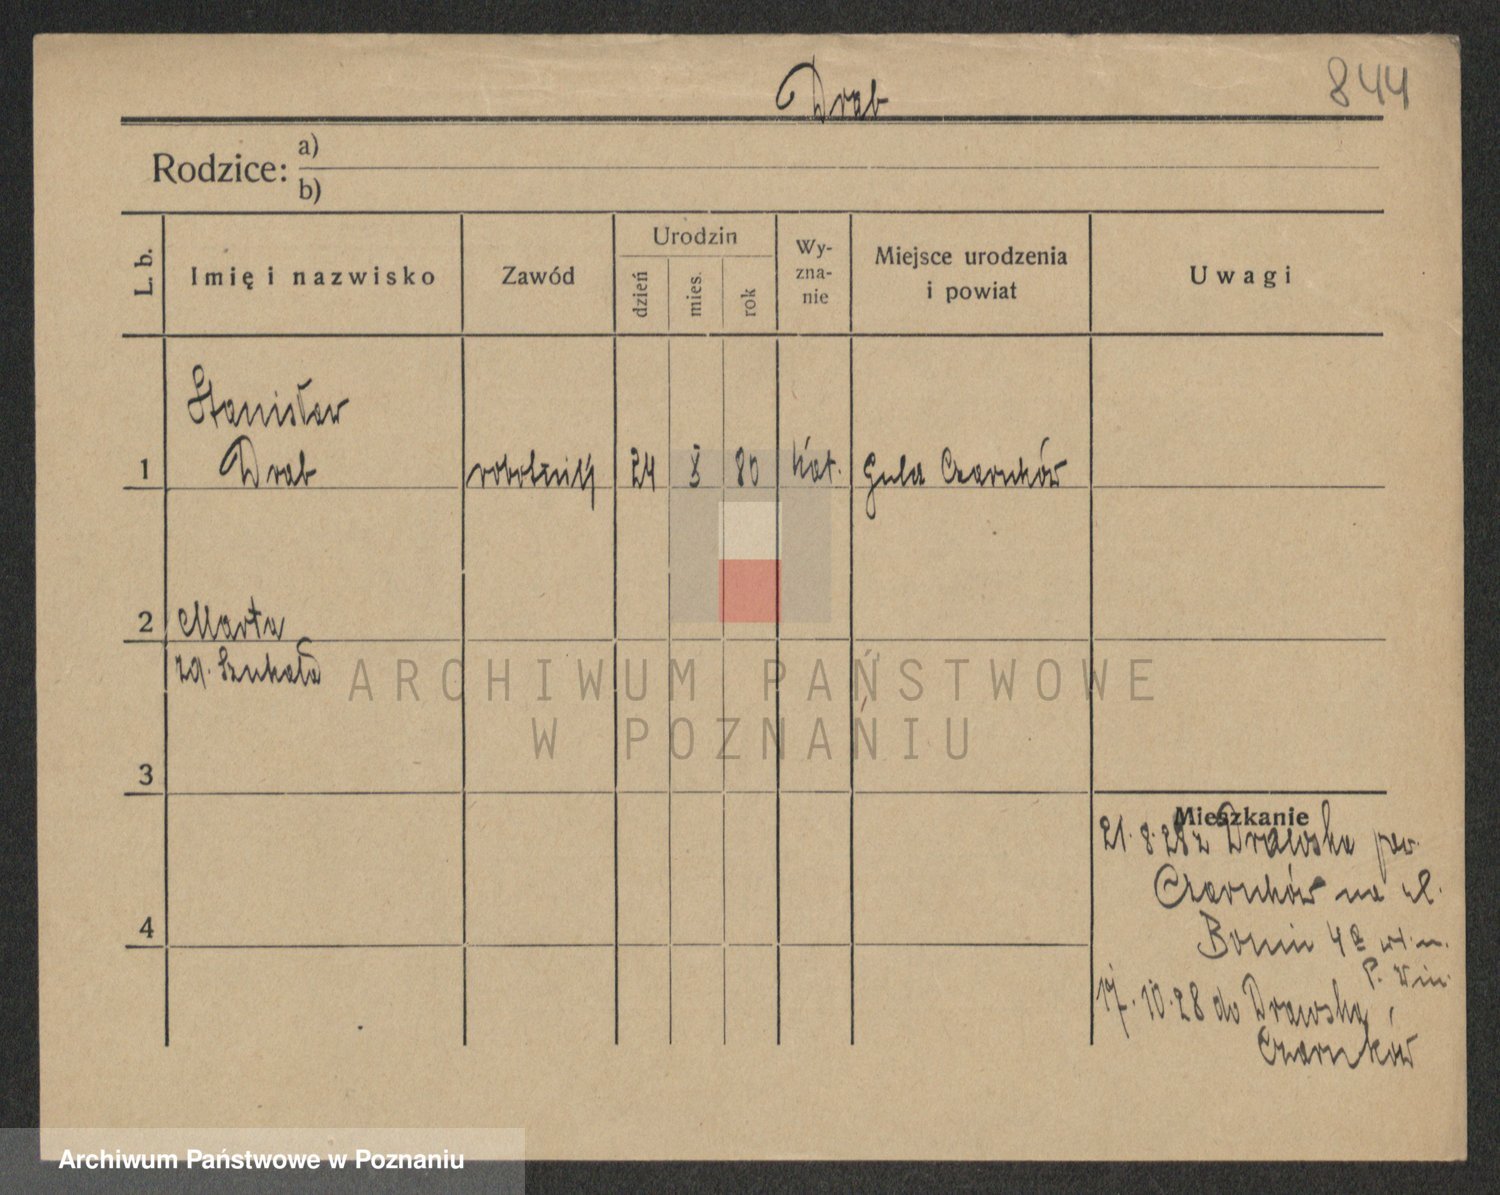 Drab
844
Rodzice: a)
b)
L. b.
Imię i nazwisko
Zawód
Urodzin
dzień
mies.
rok
Wy-
zna-
nie
Miejsce urodzenia
i powiat
Uwagi
Stanisław
1 Drab robotnik 24 8 80 kat. Gulcz Czarnków
2 Marta
zd. Szukała
ARCHIWUM PAŃSTWOWE
W POZNANIU
3
Mieszkanie
21.8.28 z Drawska pow.
Czarnków na ul.
4
Bonin 4a
17.10.28 do Drawska,
Czarnków
Archiwum Państwowe w Poznaniu